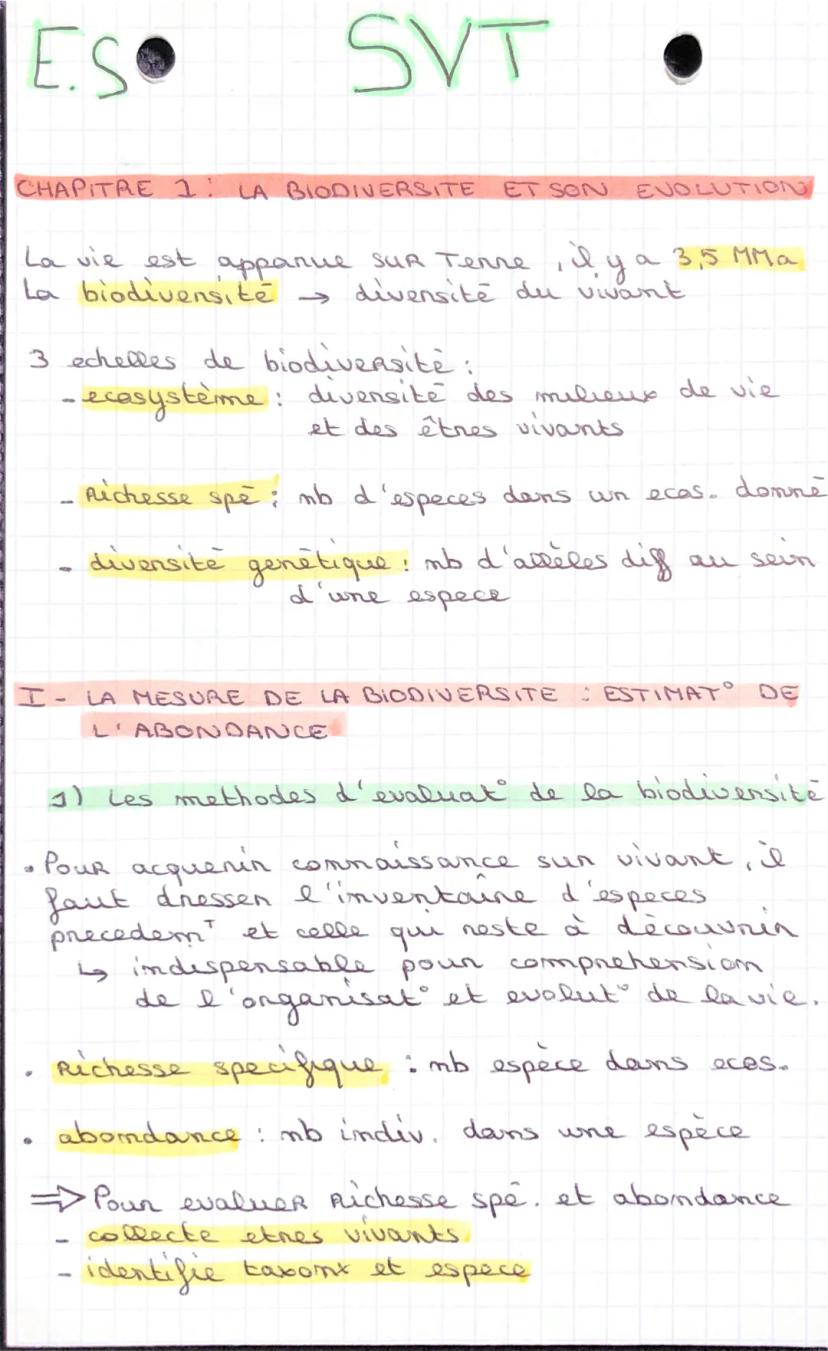 E.S SVT
CHAPITRE 1 : LA BIODIVERSITE ET SON EVOLUTION
La vie est apparue sur Terre, il y a 3,5 MMa
La biodiversité → diversité du vivant
3 echelles de biodiversité :
- ecosystème : diversité des milieux de vie
et des êtres vivants
- Richesse spé : nb d'especes dans un ecos. donné
- diversité genétique : nb d'allèles diff au sein
d'une espece
I - LA MESURE DE LA BIODIVERSITE : ESTIMAT° DE
L'ABONDANCE
1) Les methodes d'evaluat° de la biodiversité
• Pour acquerir connaissance sur vivant, il
faut dresser l'inventaire d'especes
precedemT et celle qui reste à découvrir
↳ indispensable pour comprehension
de l'organisat° et evolut° de la vie.
• Richesse specifique : nb espèce dans ecos.
• abondance : nb indiv. dans une espèce
⇒ Pour evaluer Richesse spé. et abondance
- collecte etres vivants
- identifie taxons et espece